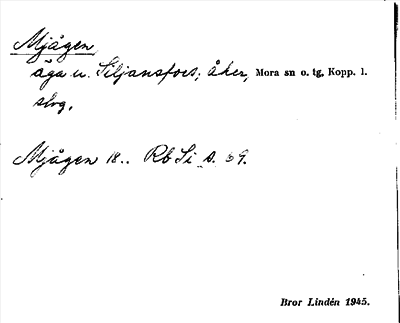 Mjågen
äga u. Siljansfors; åker, Mora sn o. tg, Kopp. l.
slog.
Mjågen 18.. Rb Si s. 59.
Bror Lindén 1945.